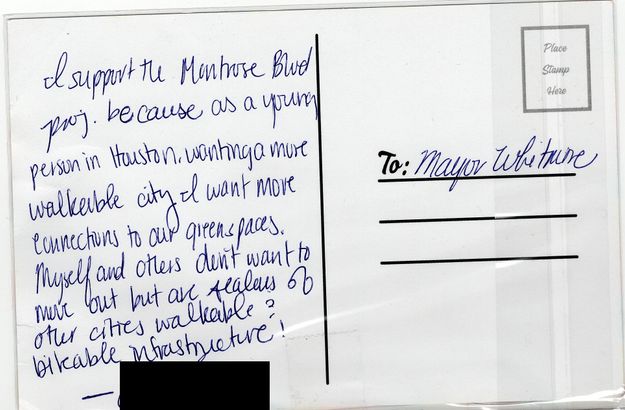 I support the Montrose Blvd
proj. because as a young
person in Houston, wanting a more
walkable city I want more
connections to our greenspaces.
Myself and others don't want to
move out but are jealous of
other cities walkable ?
bikeable infrastructure!
—
Place
Stamp
Here
To: Mayor Whitmire